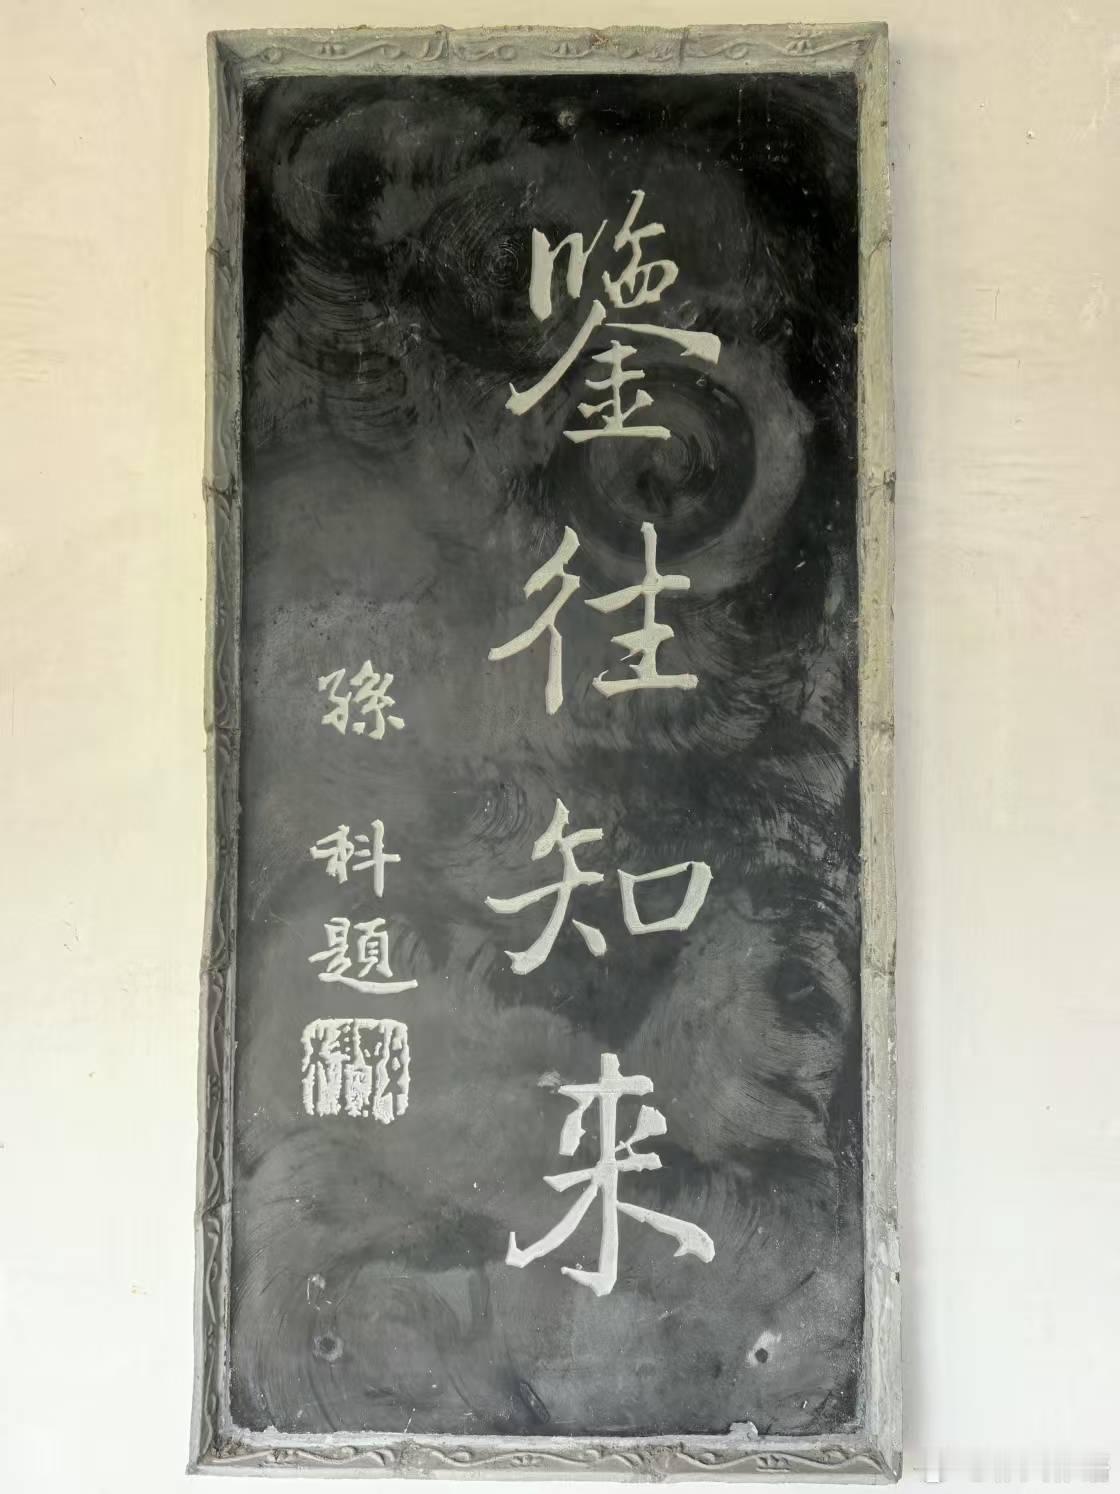 鑒往知來
孫科題